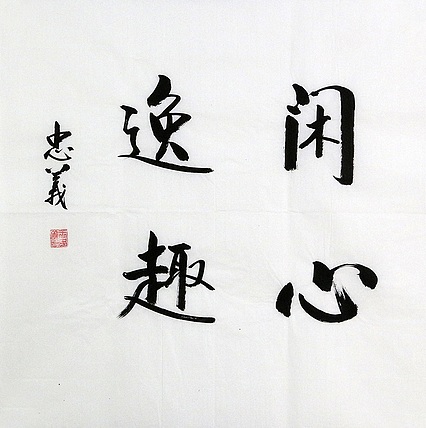 闲心
逸趣
忠義